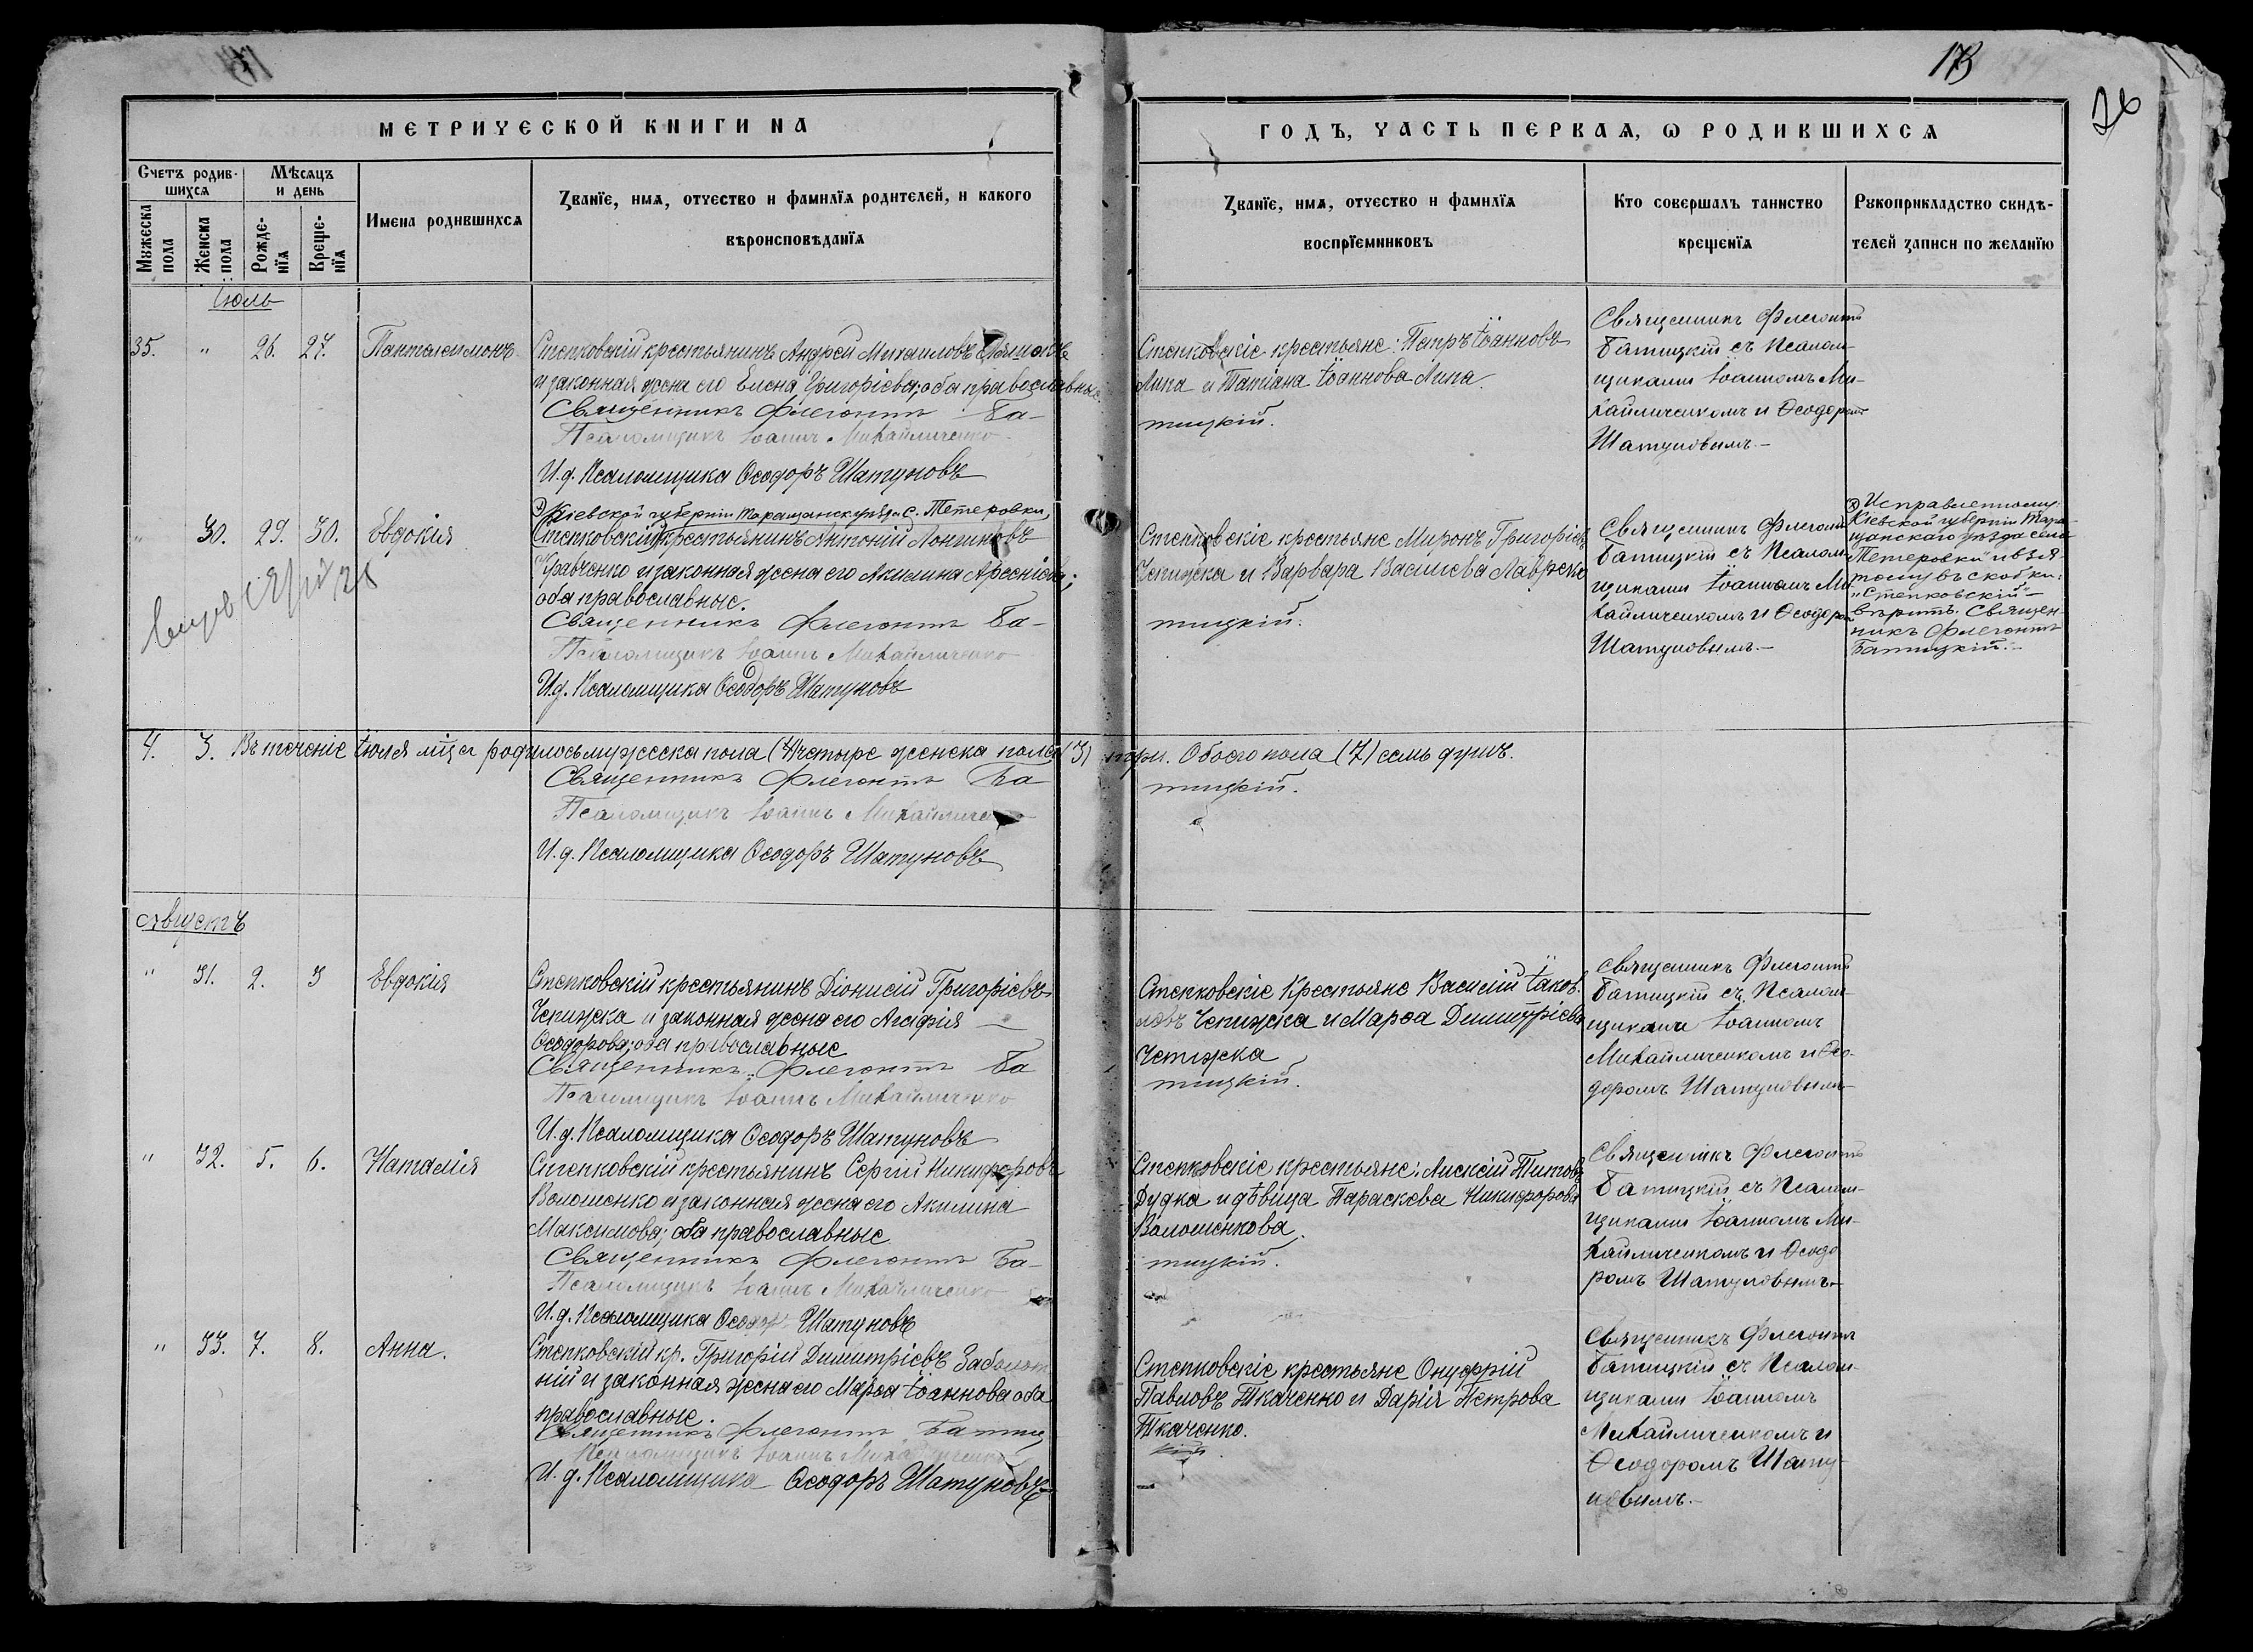 173
26
МЕТРИЧЕСКОЙ КНИГИ НА
ГОДЪ, ЧАСТЬ ПЕРВАЯ, Ѡ РОДИВШИХСЯ
Счетъ родив-
шихся
Мѣсяцъ
и день
Мужеска
пола
Женска
пола
Рожде-
нїя
Креще-
нїя
Имена родившихся
Званїе, имя, отчество и фамилїя родителей, и какого
вѣроисповѣданїя
Званїе, имя, отчество и фамилїя
воспрїемниковъ
Кто совершалъ таинство
крещенїя
Рукоприкладство свидѣ-
телей записи по желанїю
Іюль
35. " 26. 27. Пантелеимонъ
Степковскій крестьянинъ Андрей Михаиловъ
и законная жена его Елена Григоріева; оба православные.
Священникъ Флегонтъ Ба-
Псаломщикъ Іоаннъ Михайличенко
И.д. Псаломщика Ѳеодоръ Шатуновъ
Степковскіе крестьяне: Петръ Іоанновъ
Липа и Татіана Іоаннова Липа.
тицкій.
Священникъ Флегонтъ
Батицкій съ Псалом-
щиками Іоанномъ Ми-
хайличенкомъ и Ѳеодоромъ
Шатуновымъ.-
" 30. 29. 30. Евдокія
Кіевской губерніи Таращанск. уѣзда с. Тетеровки,
(Степковскій) крестьянинъ Антоній Лонгиновъ
Кравченко и законная жена его Акилина Арсеніова;
оба православные.
Священникъ Флегонтъ Ба-
Псаломщикъ Іоаннъ Михайличенко
И.д. Псаломщика Ѳеодоръ Шатуновъ
Степковскіе крестьяне Миронъ Григоріевъ
Чепижка и Варвара Василіева
тицкій.
Священникъ Флегонтъ
Батицкій съ Псалом-
щиками Іоанномъ Ми-
хайличенкомъ и Ѳеодоромъ
Шатуновымъ.-
Исправленному
Кіевской губерніи Тара-
щанскаго уѣзда села
Тетеровки" и взя-
тому въ скобки:
"Степковскій"-
вѣрить. Священ-
никъ Флегонтъ
Батицкій.-
4. 3. Въ теченіе Іюля мца родилось мужеска пола (4) четыре женска пола (3) три. Обоего пола (7) семь душъ.
Священникъ Флегонтъ Ба-
тицкій.
Псаломщикъ Іоаннъ Михайличенко
И.д. Псаломщика Ѳеодоръ Шатуновъ
Августъ
" 31. 2. 3 Евдокія
Степковскій крестьянинъ Діонисій Григоріевъ
Чепижка и законная жена его Агафія
Ѳеодорова; оба православные
Священникъ Флегонтъ Ба
Псаломщикъ Іоаннъ Михайличенко
И.д. Псаломщика Ѳеодоръ Шатуновъ
Степковскіе Крестьяне Василій Іаков-
ловъ Чепижка и Марѳа Димитріева
Чепижка
тицкій.
Священникъ Флегонтъ
Батицкій съ Псалом-
щиками Іоанномъ
Михайличенкомъ и Ѳео-
доромъ Шатуновымъ
" 32. 5. 6. Наталія
Степковскій крестьянинъ Сергій Никифоровъ
Волошенко и законная жена его Акилина
Максимова; оба православные
Священникъ Флегонтъ Ба-
Псаломщикъ Іоаннъ Михайличенко
И.д. Псаломщика Ѳеодоръ Шатуновъ
Степковскіе крестьяне: Алексій Титовъ
Дудка и дѣвица Параскева Никифорова
Волошенкова.
тицкій.
Священникъ Флегонтъ
Батицкій съ Псалом-
щиками Іоанномъ Ми-
хайличенкомъ и Ѳеодо
ромъ Шатуновымъ.
" 33. 7. 8. Анна.
Степковскій кр. Григорій Димитріевъ Заболот
ній и законная жена его Марѳа Іоаннова оба
православные.
Священникъ Флегонтъ Батиц
Псаломщикъ Іоаннъ Михайличенко
И.д. Псаломщика Ѳеодоръ Шатуновъ
Степковскіе крестьяне Онуфрій
Павловъ Ткаченко и Дарія Петрова
Ткаченко.
кій.
Священникъ Флегонтъ
Батицкій съ Псалом-
щиками Іоанномъ
Михайличенкомъ и
Ѳеодоромъ Шату-
новымъ.-